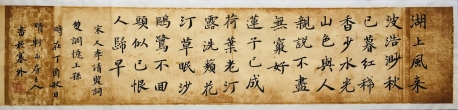 湖上風来
波浩渺秋
已暮紅稀
香少水光
山色與人
親說不盡
無窮好
蓮子已成
荷葉老清
露洗蘋花
汀草眠沙
鷗鷺不回
頭似已恨
人歸早
宋人李清照詞
雙調憶王孫
時在丁酉秋
山居主人